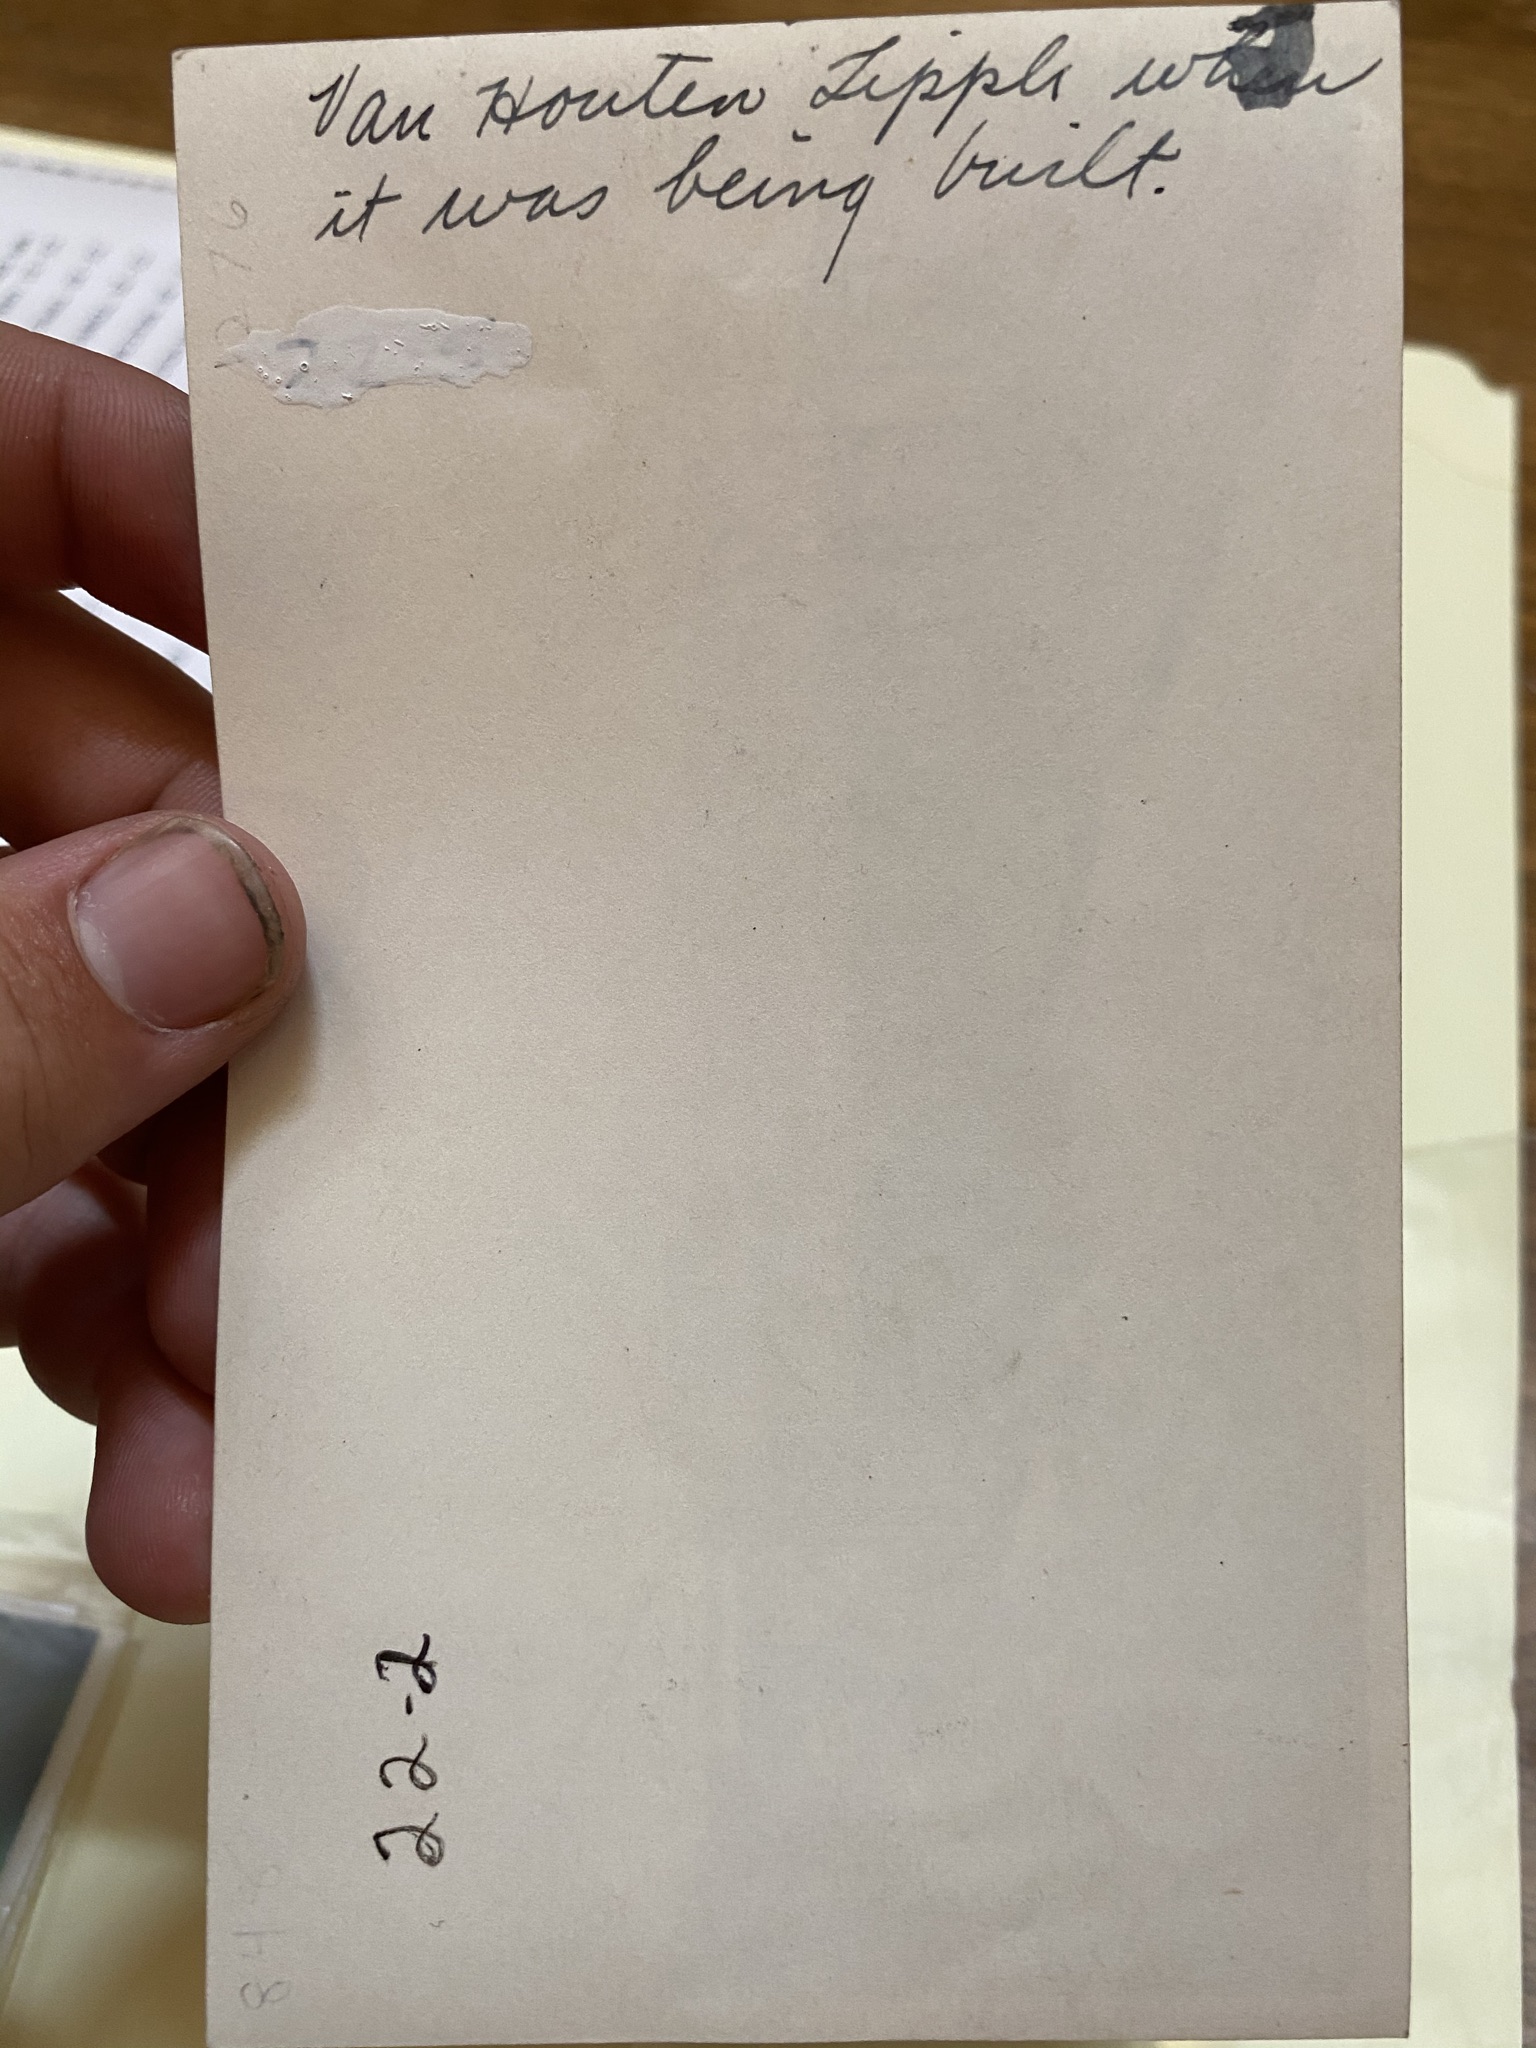 Van Houten Tipple when
it was being built.
276
22-2